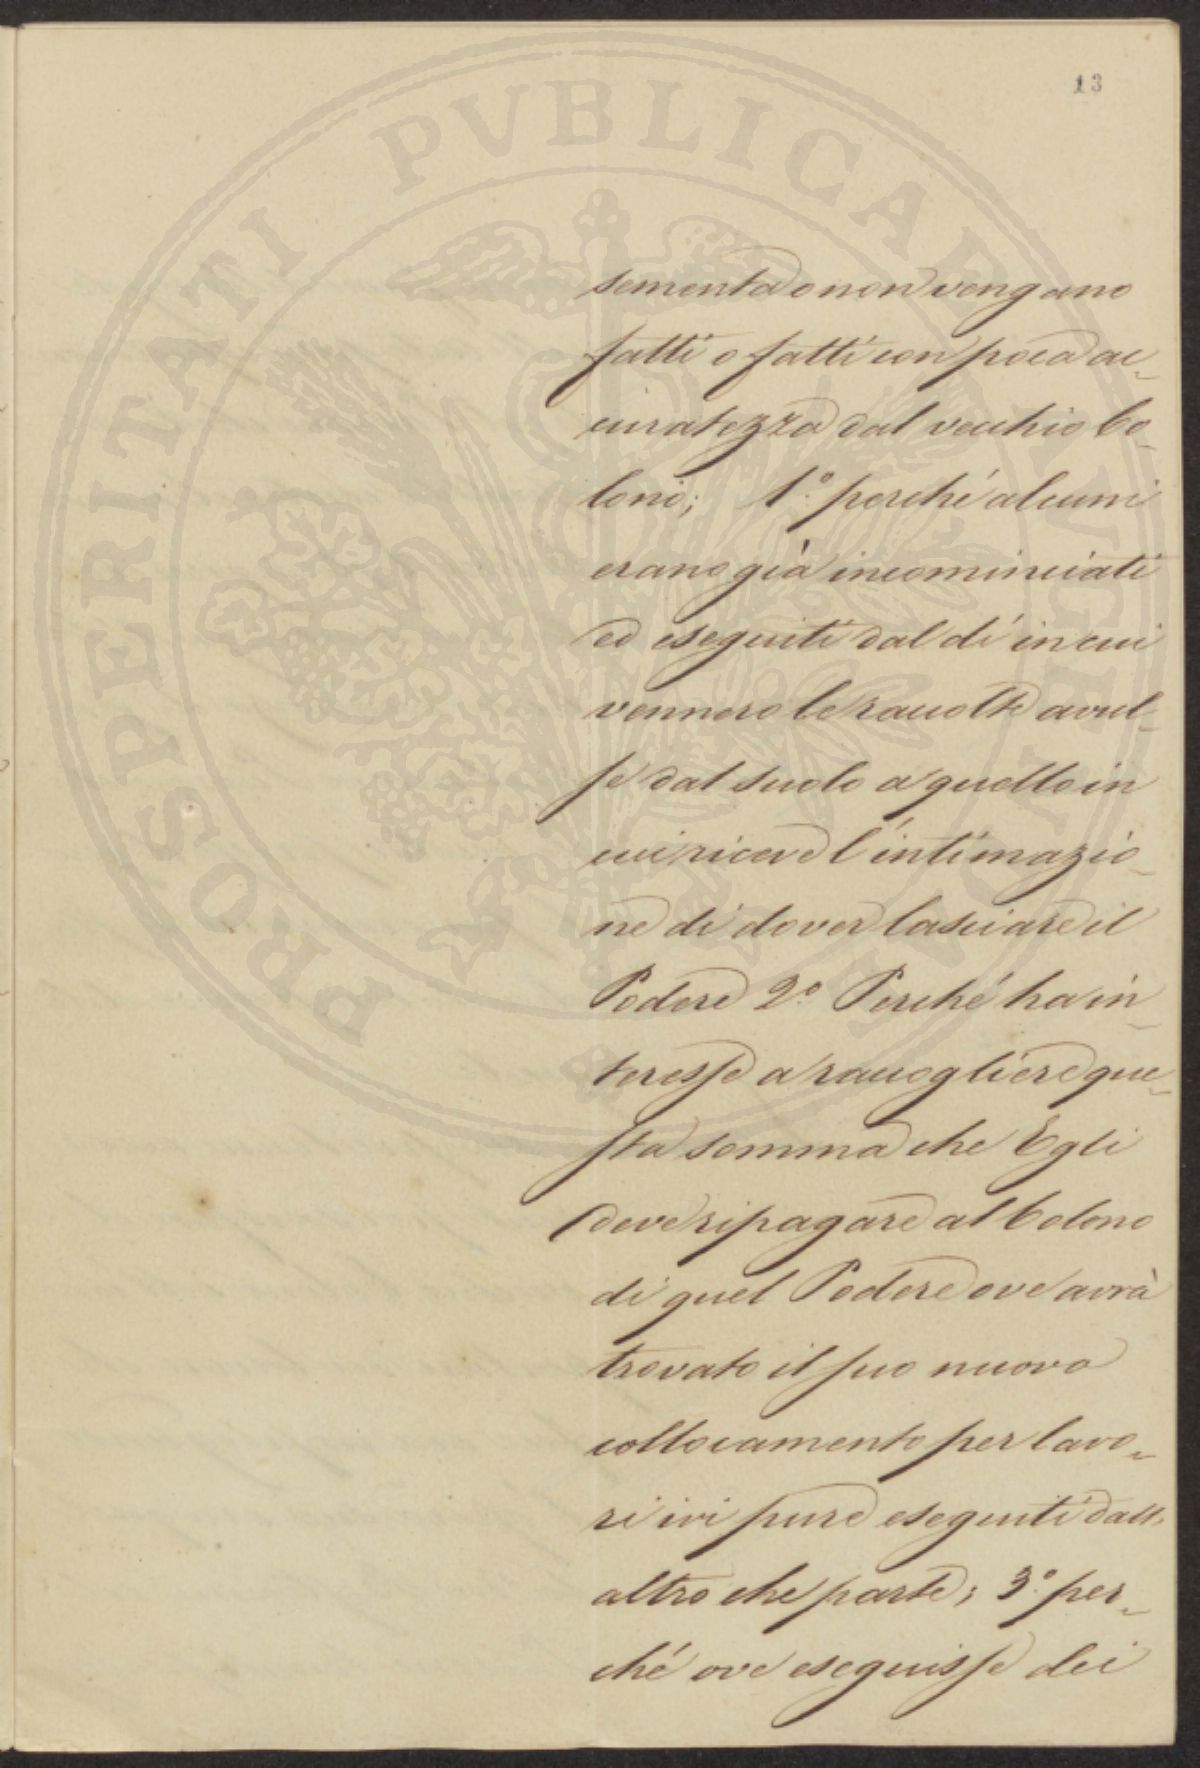 13
PROSPERITATI PVBLICAE AVGENDAE
sementa o non vengano
fatti o fatti con poca ac-
curatezza dal vecchio Co-
lono; 1.º perché alcuni
erano già incominciati
ed eseguiti dal dí in cui
vennero le raccolte avul-
se dal suolo a quello in
cui riceve l'intimazio-
ne di dover lasciare il
Podere 2.º Perché ha in-
teresse a raccogliere que-
sta somma che Egli
deve ripagare al Colono
di quel Podere ove avrà
trovato il suo nuovo
collocamento per lavo-
ri ivi pure eseguiti dall'
altro che parte; 3.º per-
ché ove eseguisse dei